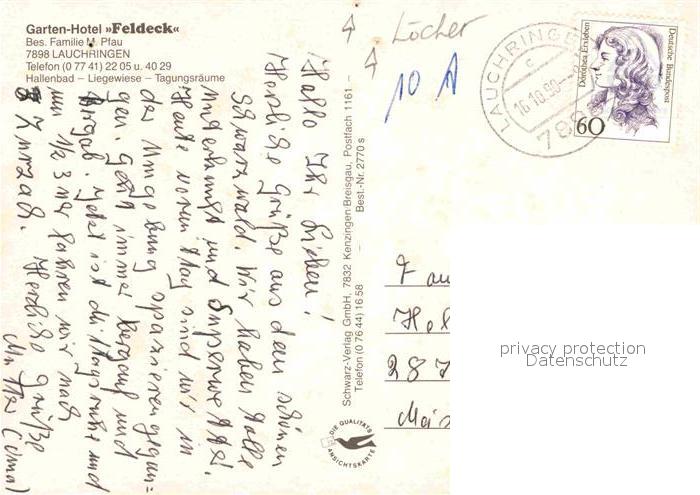 Garten-Hotel »Feldeck«
Bes. Familie M. Pfau
7898 LAUCHRINGEN
Telefon (0 77 41) 22 05 u. 40 29
Hallenbad – Liegewiese – Tagungsräume
Löcher
10 A
LAUCHRINGEN
c
16.10.90
789
Dorothea Erxleben
Deutsche Bundespost
60
Hallo Ihr Lieben!
Herzliche Grüße aus dem schönen
Schwarzwald. Wir haben tolle
Unterkunft und Superwetter!
Heute vormittag sind wir in
der Umgebung spazierengegan=
gen. Geht immer bergauf und
bergab. Jetzt ist Mittagsruhe und
um 1/2 3 Uhr fahren wir nach
Zurzach.
Herzliche Grüße
Schwarz-Verlag GmbH, 7832 Kenzingen/Breisgau, Postfach 1161 –
Telefon (0 76 44) 16 58 – Best.-Nr. 2770 s
DIE QUALITÄTS
ANSICHTSKARTE
287
privacy protection
Datenschutz